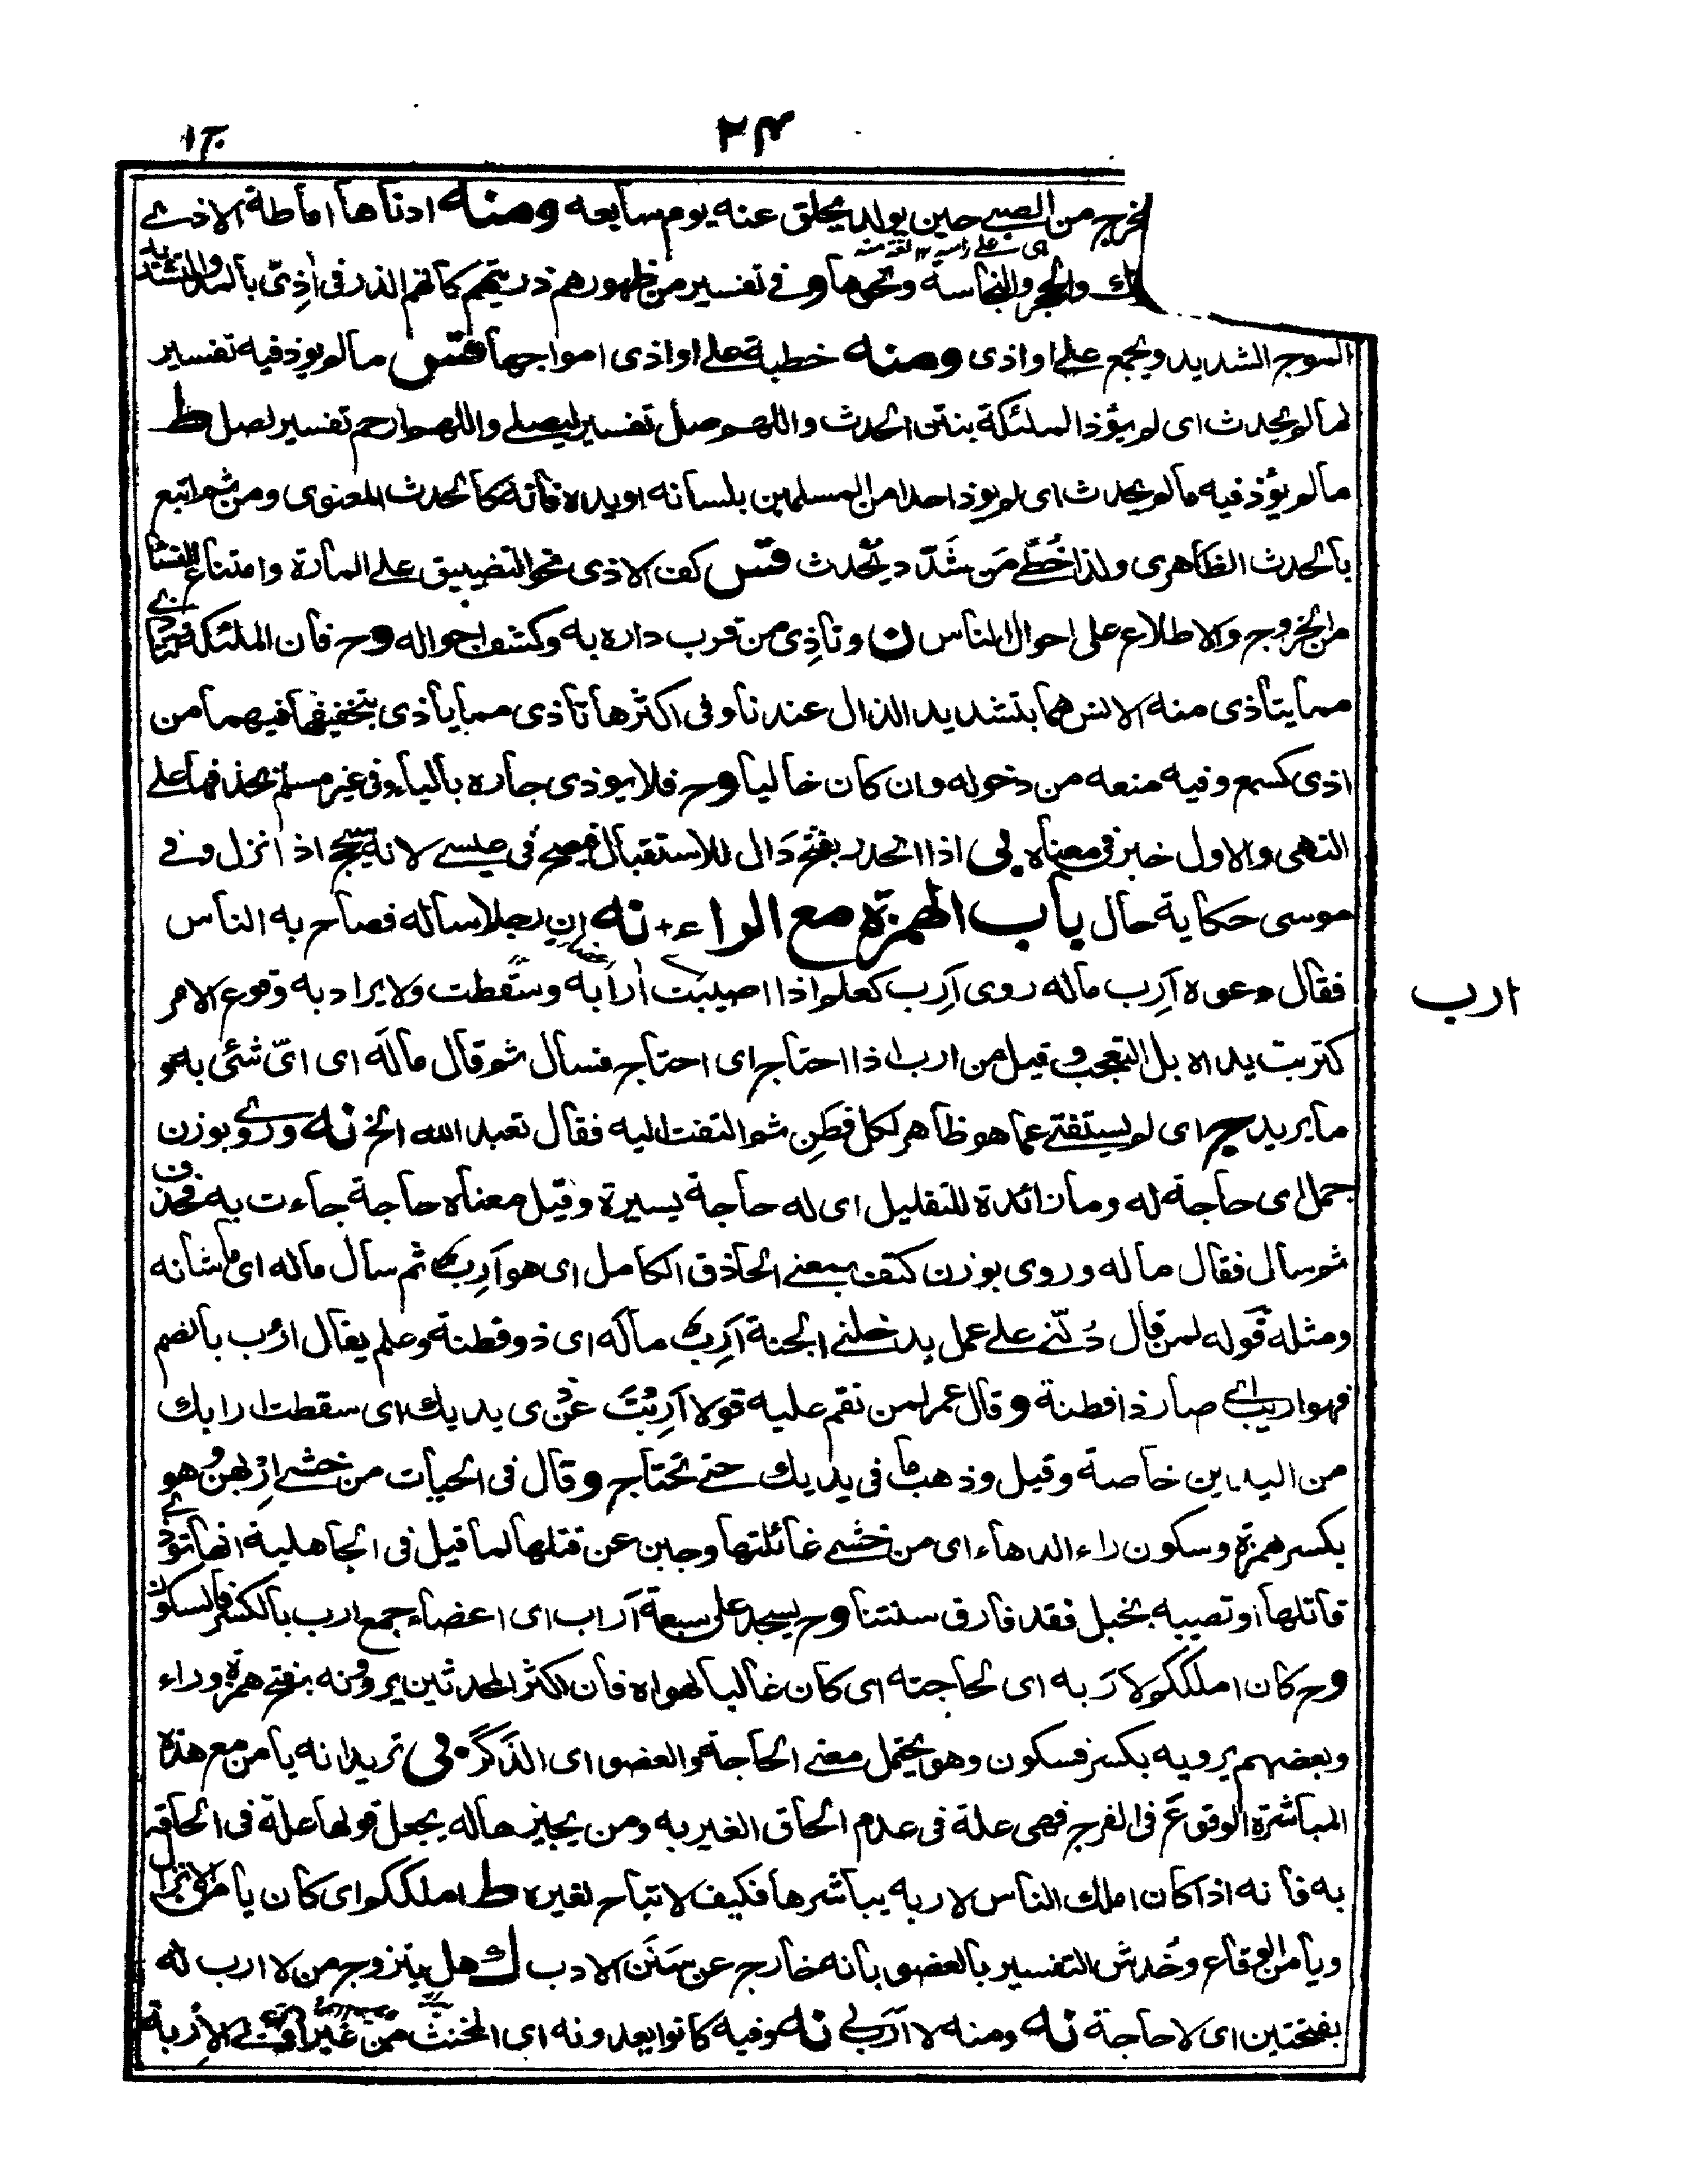 ۲۴
ج ۱
يخرج من الصبي حين يولد يحلق عنه يوم سابعه ومنه ادناها اماطة الاذى
كالشوك والحجر والنجاسة ونحوها وفي تفسير من ظهورهم ذريتهم كانهم الذر في اذِيّ بالمد والتشديد
الموج الشديد ويجمع على اواذى ومنه خطبة علي اواذى امواجها قس مالم يوذ فيه تفسير
لما لم يحدث اى لم يؤذ الملئكة بنتن الحدث واللهم صل تفسير ليصلى واللهم ارحم تفسير لصل ط
مالم يؤذ فيه مالم يحدث اى لم يوذ احدا من المسلمين بلسانه او يده فانه كالحدث المعنوى ومن ثم اتبع
بالحدث الظاهرى ولذا خُطّئ من شَدّد يحدث قس كف الاذى نحو التضييق على المارة وامتناع النساء
من الخروج والاطلاع على احوال الناس ن وتاذِى من قرب داره به وكشف احواله وح فان الملئكة تتاذى
مما يتأذى منه الانس هما بتشديد الذال عندنا وفى اكثرها تاذى مما ياذى بتخفيفها فيهما من
اذى كسمع وفيه منعه من دخوله وان كان خاليا وح فلا يوذى جاره بالياء وفى غير مسلم بحذفها على
النهى والاول خبر في معناه بى اذا انحدر بفتح دال للاستقبال فيصح فى عيسى لانه يحج اذ انزل وفى
موسى حكاية حال باب الهمزة مع الراء + نه ان رجلا ساله فصاح به الناس
ارب
فقال دعوه اَرِب ماله روى اَرِب كعلم اذا اصيبت ارابه وسقطت ولا يراد به وقوع الامر
كتربت يداه بل التعجب وقيل من ارب اذا احتاج اى احتاج فسال ثم قال مالَه اى اىّ شئى به هو
ما يريد ج اى لم يستفتى عما هو ظاهر لكل فطِن ثم التفت اليه فقال تعبد الله الخ نه وروى بوزن
جمل اى حاجة له وما زائدة للتقليل اى له حاجة يسيرة وقيل معناه حاجة جاءت به فحذف
ثم سال فقال ماله وروى بوزن كتف بمعنى الحاذق الكامل اى هو اَرِب ثم سال ماله اى ما شانه
ومثله قوله لمن قال دُلّنى على عمل يدخلنى الجنة اَرِب مالَه اى ذو فطنة وعلم يقال ارُب بالضم
فهو اريب اى صار ذا فطنة وقال عمر لمن نقم عليه قولا اَرِبْتَ عن ذى يديك اى سقطت ارابك
من اليدين خاصة وقيل وذهب ما فى يديك حتى تحتاج وقال فى الحيات من خشى اِرْبهن هو
بكسر همزة وسكون راء الدهاء اى من خشى غائلتها وجبن عن قتلها لما قيل فى الجاهلية انها تؤذى
قاتلها او تصيبه بخبل فقد فارق سنتنا وح يسجد على سبعة اَراب اى اعضاء جمع ارب بالكسر فالسكون
وح كان املككم لارَبه اى لحاجته اى كان غالبا لهواه فان اكثر المحدثين يروونه بفتح همزة وراء
وبعضهم يرويه بكسر فسكون وهو يحتمل معنى الحاجة والعضو اى الذكره فى تريد انه يامن مع هذه
المباشرة الوقوع فى الفرج فهى علة فى عدم الحاق الغير به ومن يجيزها له يجعل قولها علة فى الحاقه
به فانه اذا كان املك الناس لاربه يباشرها فكيف لا تباح لغيره ط املككم اى كان يامن الانزال
ويامن الوقاع وخُدش التفسير بالعضو بانه خارج عن سَنَن الادب ك هل يتزوج من لا ارب له
بفتحتين اى لا حاجة نه ومنه لا اَرَبَ لى نه وفيه كانوا يعدونه اى المخنث من غير اولى الاِربة